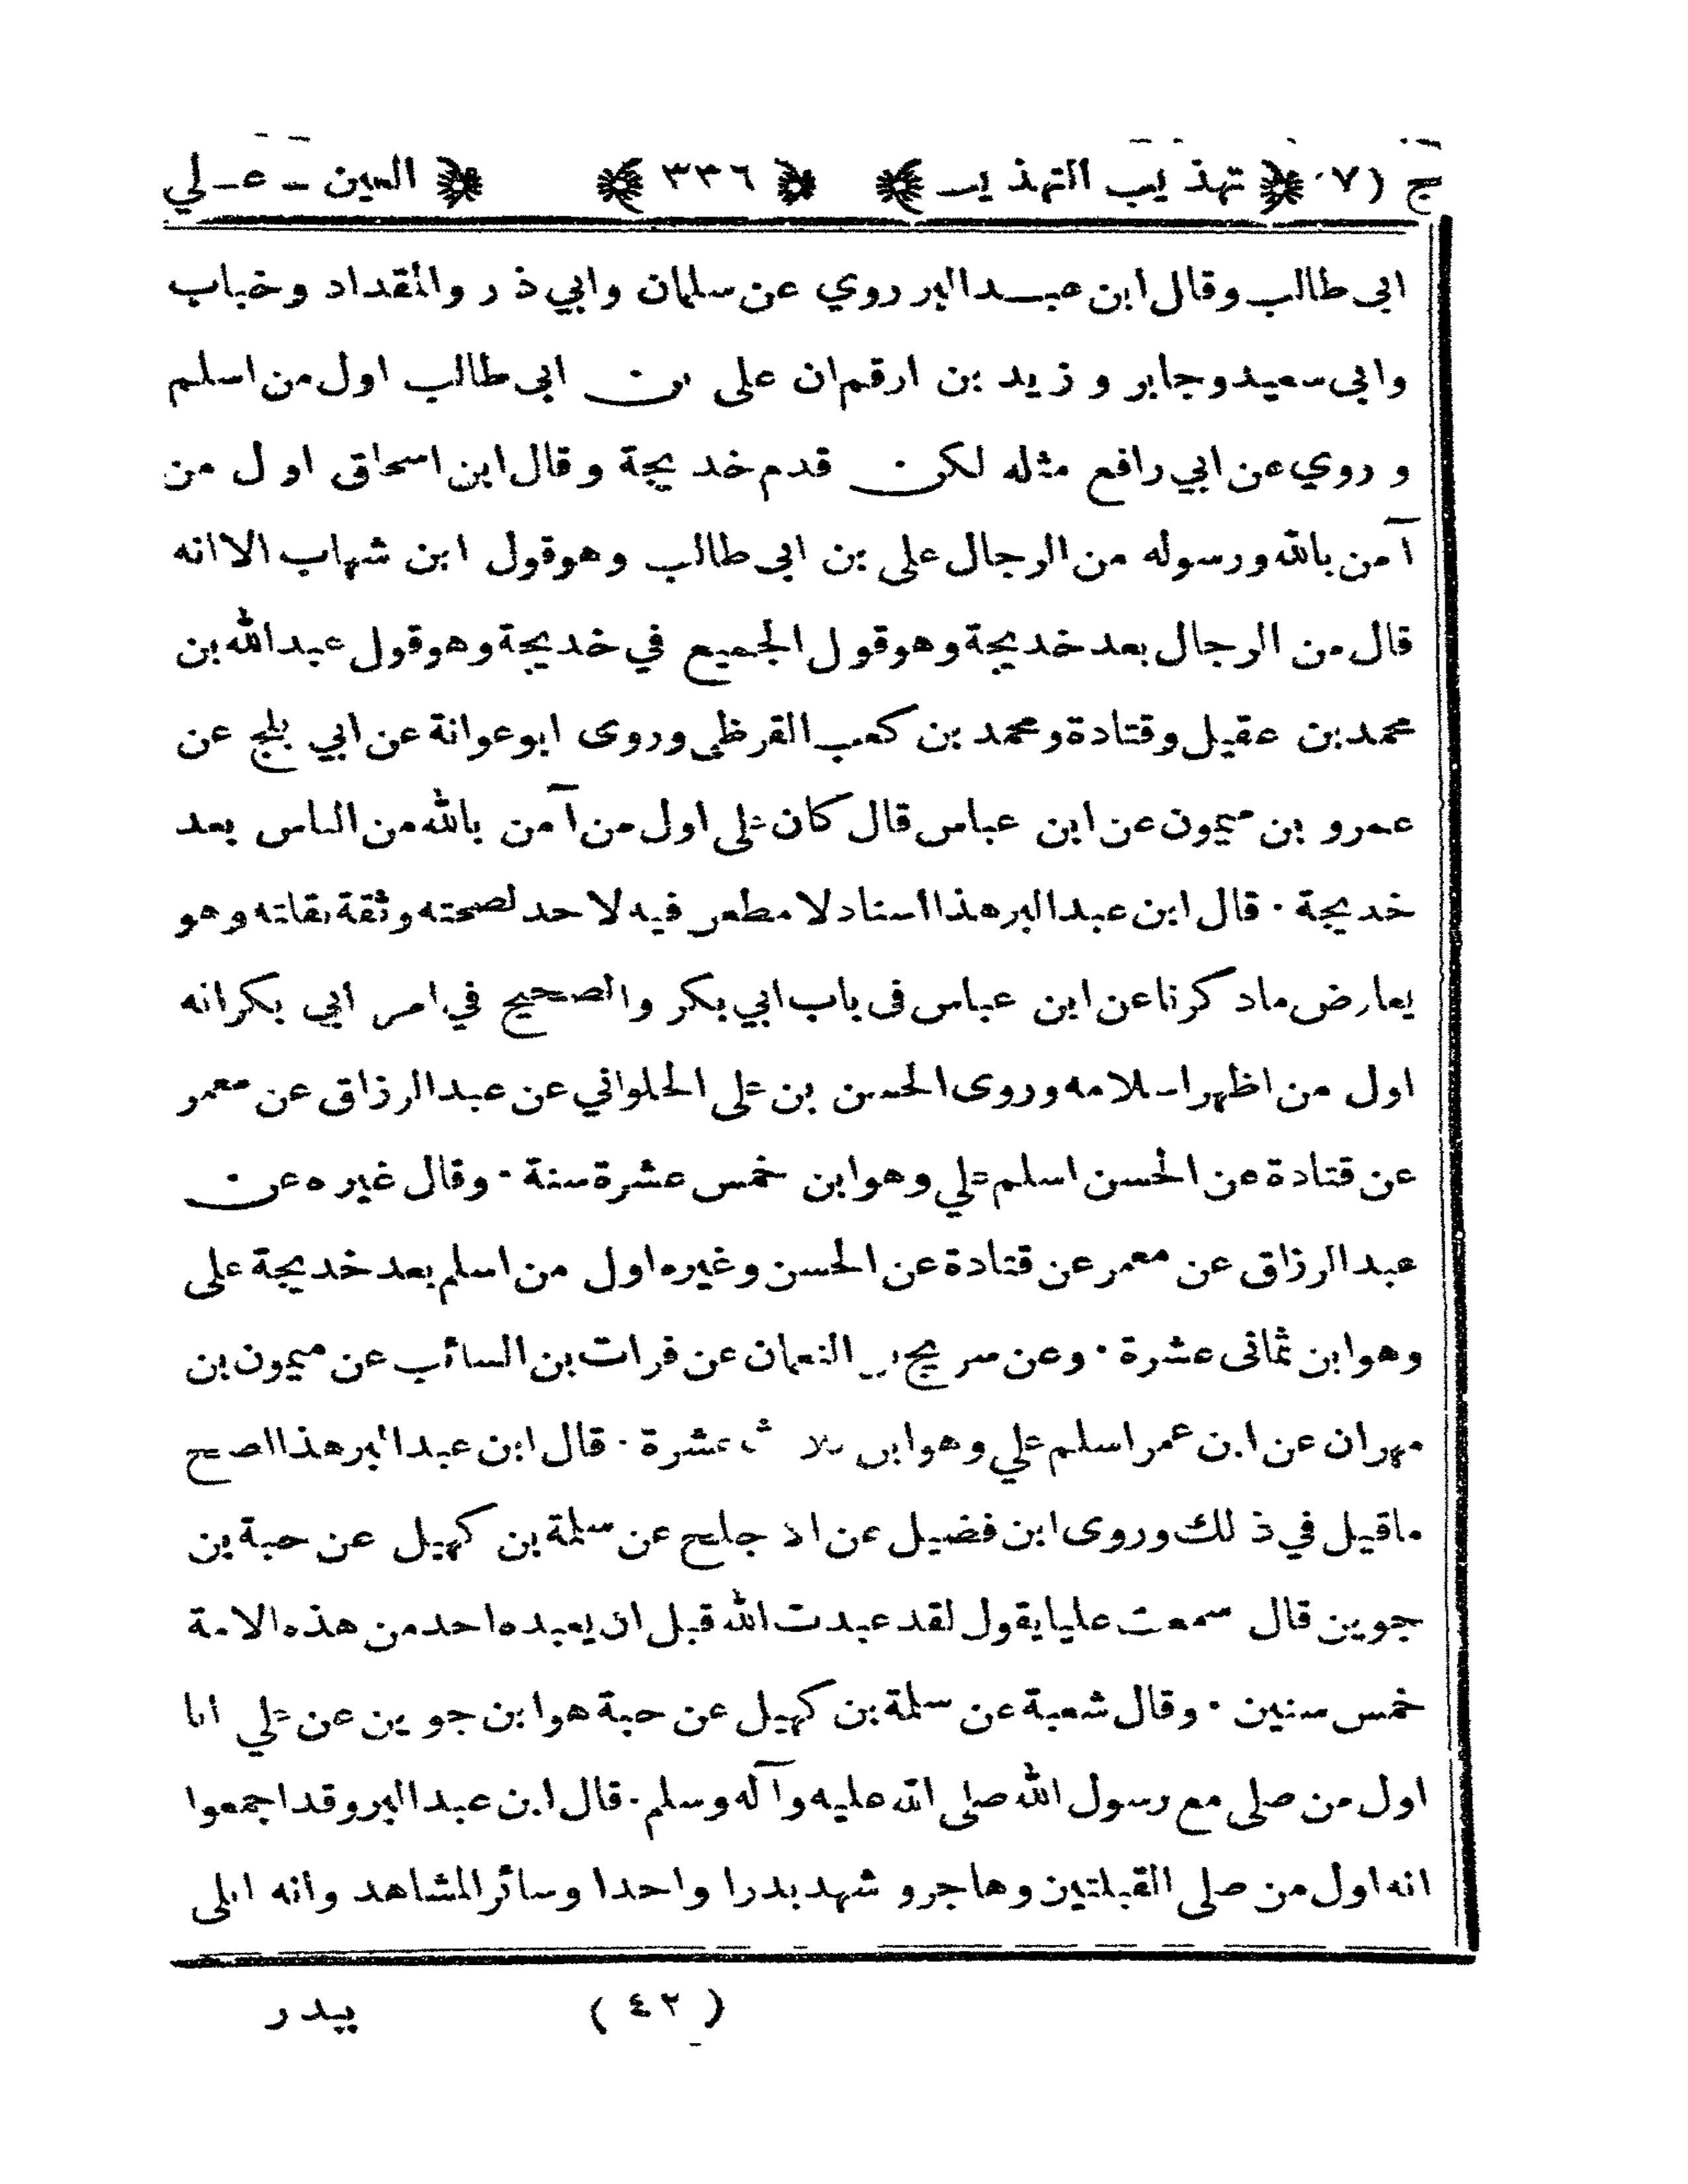 ج (٧) تهذيب التهذيب ٣٣٦ العين - علي
ابى طالب وقال ابن عبد البر روي عن سلمان وابي ذر والمقداد وخباب
وابى سعيد وجابر وزيد بن ارقم ان على بن ابى طالب اول من اسلم
وروي عن ابي رافع مثله لكن قدم خديجة وقال ابن اسحاق اول من
آمن بالله ورسوله من الرجال على بن ابى طالب وهو قول ابن شهاب الا انه
قال من الرجال بعد خديجة وهو قول الجميع في خديجة وهو قول عبد الله بن
محمد بن عقيل وقتادة ومحمد بن كعب القرظى وروى ابو عوانة عن ابي بلج عن
عمرو بن ميمون عن ابن عباس قال كان على اول من آمن بالله من الناس بعد
خديجة · قال ابن عبد البر هذا اسناد لا مطعن فيه لاحد لصحته وثقة نقلته وهو
يعارض ماذكرنا عن ابن عباس فى باب ابي بكر والصحيح في امر ابي بكر انه
اول من اظهر اسلامه وروى الحسن بن على الحلواني عن عبد الرزاق عن معمر
عن قتادة عن الحسن اسلم علي وهو ابن خمس عشرة سنة · وقال غيره عن
عبد الرزاق عن معمر عن قتادة عن الحسن وغيره اول من اسلم بعد خديجة على
وهو ابن ثمانى عشرة · وعن سريج بن النعمان عن فرات بن السائب عن ميمون بن
مهران عن ابن عمر اسلم علي وهو ابن ثلاث عشرة · قال ابن عبد البر هذا اصح
ماقيل في ذلك وروى ابن فضيل عن الاجلح عن سلمة بن كهيل عن حبة بن
جوين قال سمعت عليا يقول لقد عبدت الله قبل ان يعبده احد من هذه الامة
خمس سنين · وقال شعبة عن سلمة بن كهيل عن حبة هو ابن جوين عن علي انا
اول من صلى مع رسول الله صلى الله عليه وآله وسلم · قال ابن عبد البر وقد اجمعوا
انه اول من صلى القبلتين وهاجر و شهد بدرا واحدا وسائر المشاهد وانه ابلى
(٤٢) ببدر